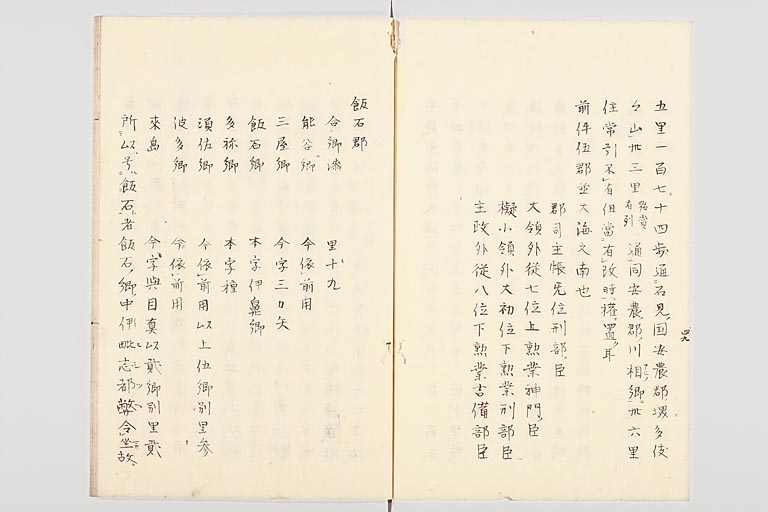 五里一百七十四歩通石見国安農郡堺多伎
々山卅三里路常有剗通同安農郡川相郷卅六里
住常剗不有但當有政時権置耳
前件伍郡並大海之南也
郡司主帳无位刑部臣
大領外従七位上勲業神門臣
擬小領外大初位下勲業刑部臣
主政外従八位下勲業吉備部臣
四九
飯石郡
合郷漆 里十九
熊谷郷 今依前用
三屋郷 今字三刀矢
飯石郷 本字伊鼻郷
多祢郷 本字種
須佐郷 今依前用以上伍郷別里参
波多郷 今依前用
來島 今字與目真以貳郷別里貳
所以号飯石者飯石郷中伊毗志都幣命坐故